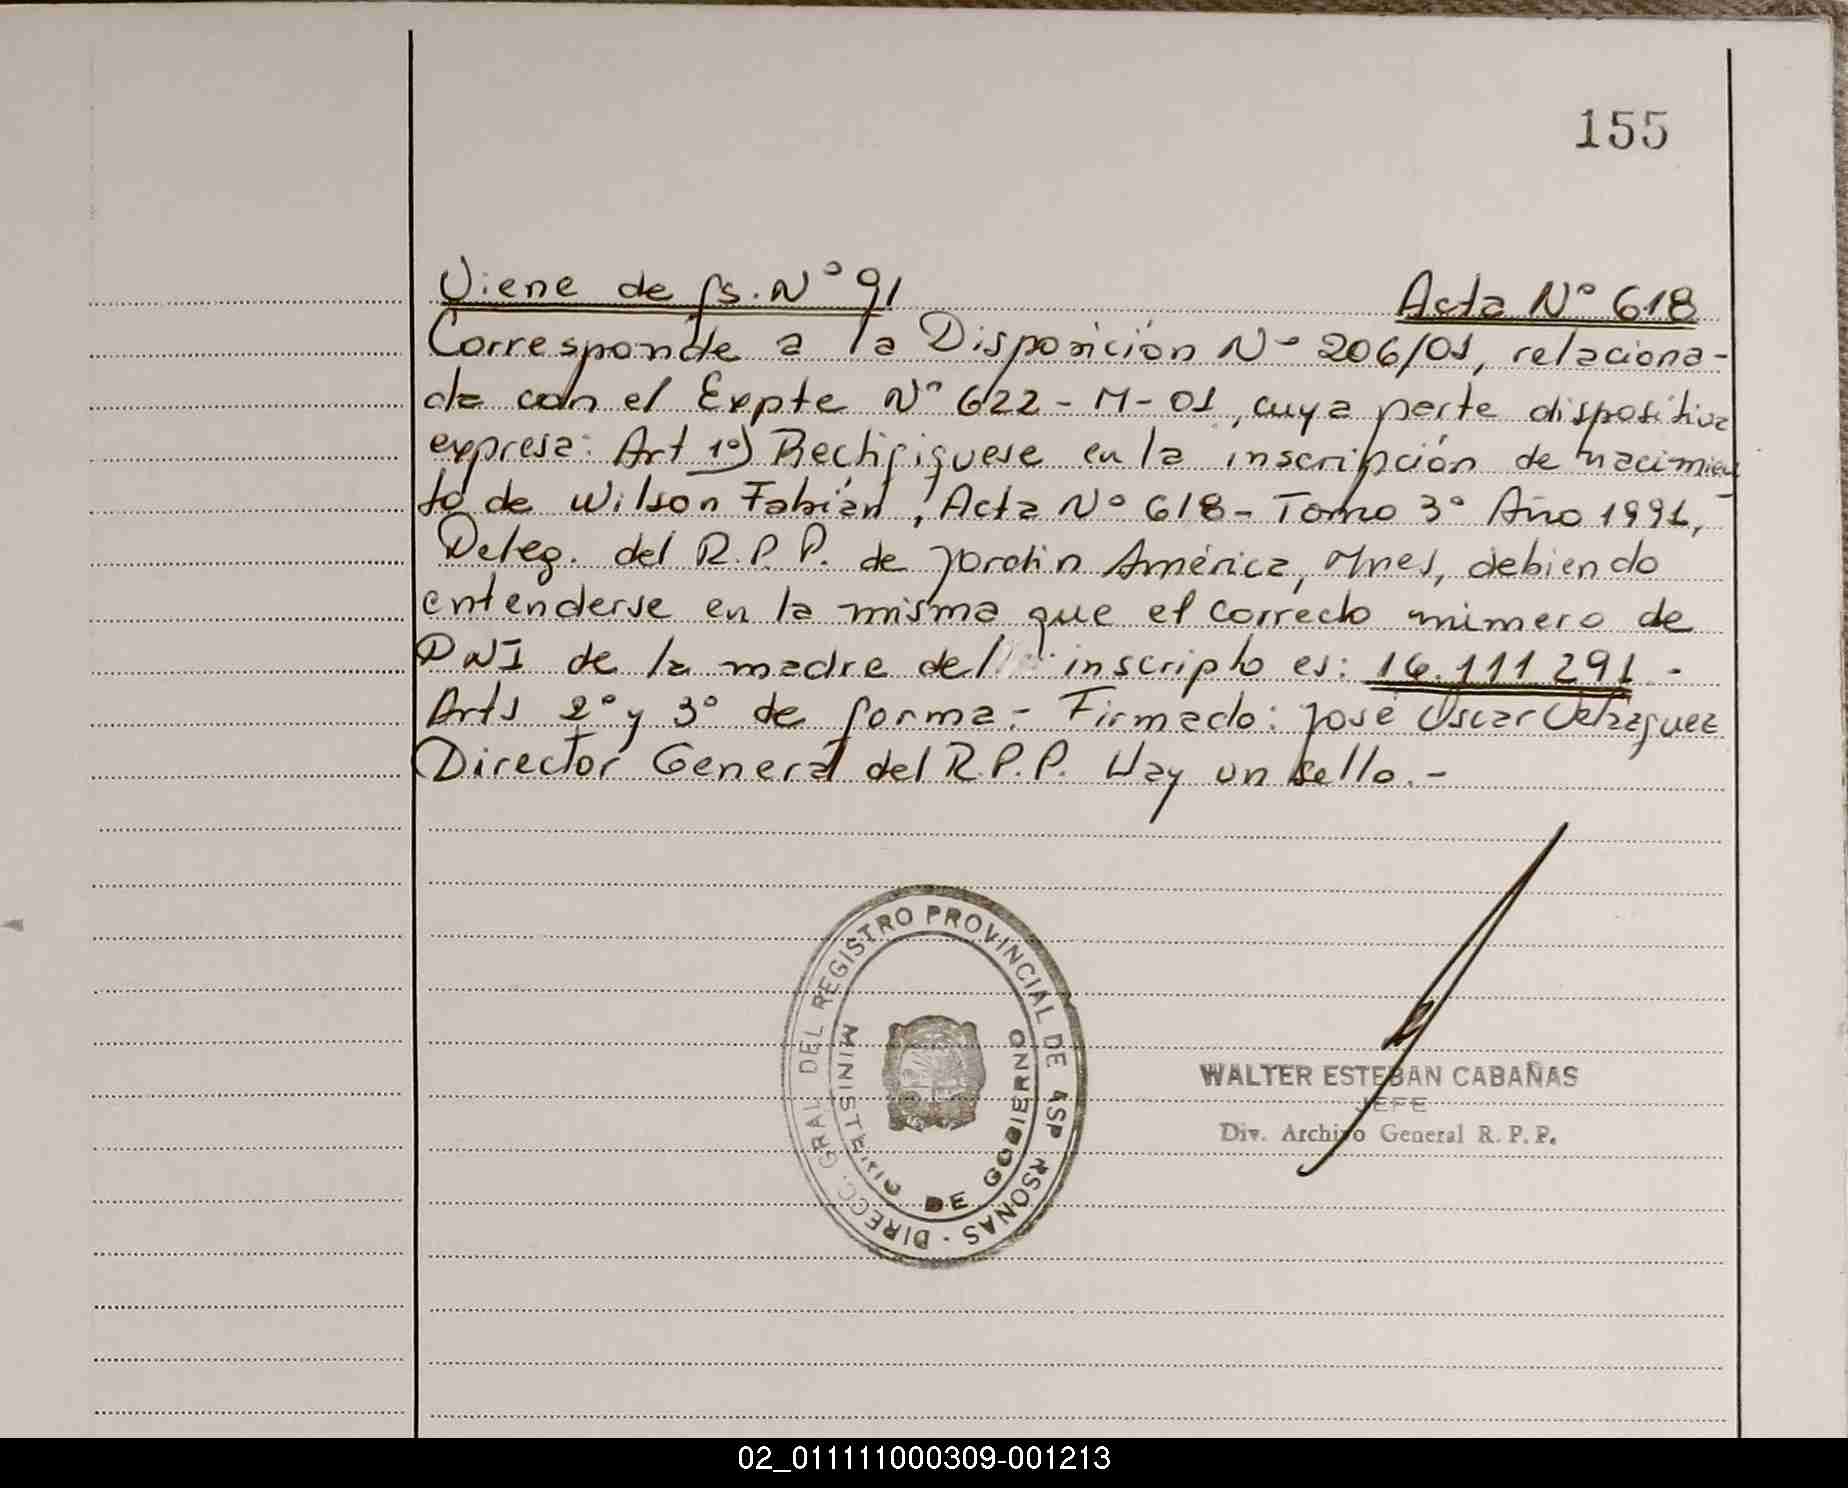 155
Viene de fs. N° 91
Acta N° 618
Corresponde a la Disposición N° 206/01, relaciona-
da con el Expte N° 622-M-01, cuya parte dispositiva
expresa: Art 1°) Rectifiquese en la inscripción de nacimien
to de Wilson Fabián, Acta N° 618 - Tomo 3° Año 1991,
Deleg. del R.P.P. de Jardin América, Mnes, debiendo
entenderse en la misma que el correcto número de
DNI de la madre del inscripto es: 16.111 291 -
Arts 2° y 3° de forma.- Firmado: José Oscar Velazquez
Director General del R.P.P. Hay un sello.-
DIRECC. GRAL DEL REGISTRO PROVINCIAL DE LAS PERSONAS
MINISTERIO DE GOBIERNO
WALTER ESTEBAN CABAÑAS
JEFE
Div. Archivo General R. P. P.
02_011111000309-001213